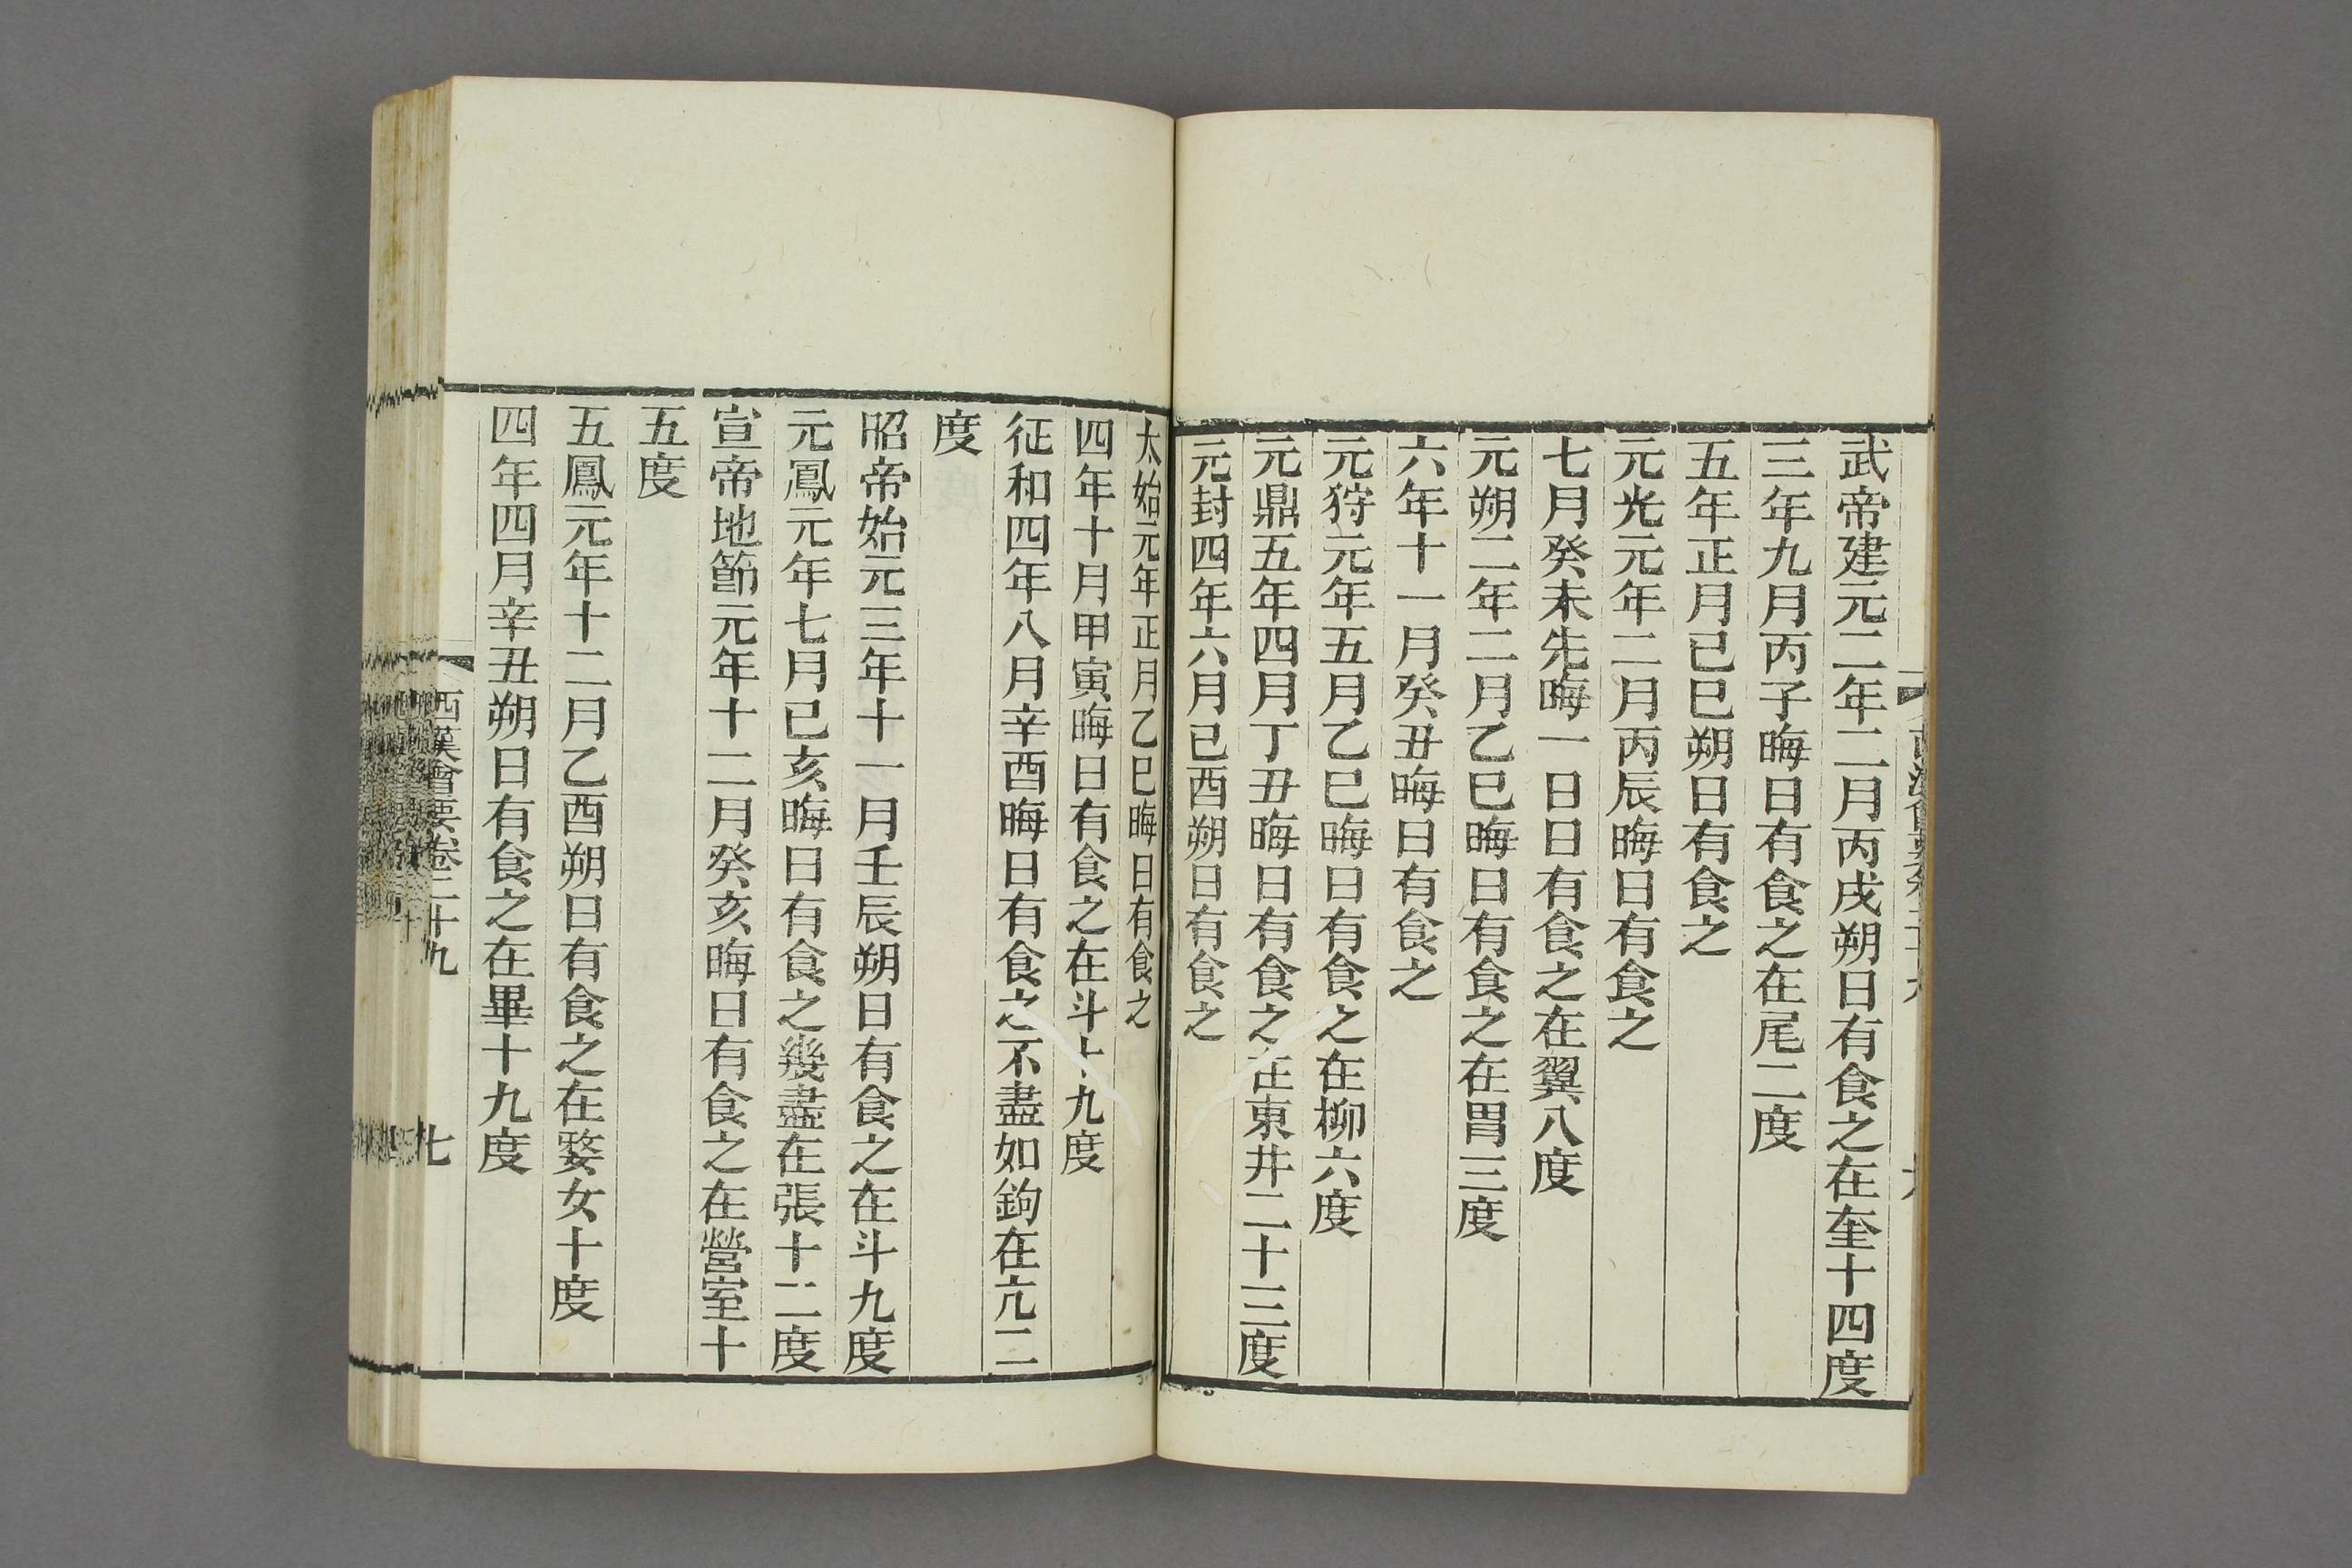 武帝建元二年二月丙戌朔日有食之在奎十四度
三年九月丙子晦日有食之在尾二度
五年正月己巳朔日有食之
元光元年二月丙辰晦日有食之
七月癸未先晦一日日有食之在翼八度
元朔二年二月乙巳晦日有食之在胃三度
六年十一月癸丑晦日有食之
元狩元年五月乙巳晦日有食之在柳六度
元鼎五年四月丁丑晦日有食之在東井二十三度
元封四年六月己酉朔日有食之
太始元年正月乙巳晦日有食之
四年十月甲寅晦日有食之在斗十九度
征和四年八月辛酉晦日有食之不盡如鉤在亢二
度
昭帝始元三年十一月壬辰朔日有食之在斗九度
元鳳元年七月己亥晦日有食之幾盡在張十二度
宣帝地節元年十二月癸亥晦日有食之在營室十
五度
五鳳元年十二月乙酉朔日有食之在婺女十度
四年四月辛丑朔日有食之在畢十九度
西漢會要卷二十九
七